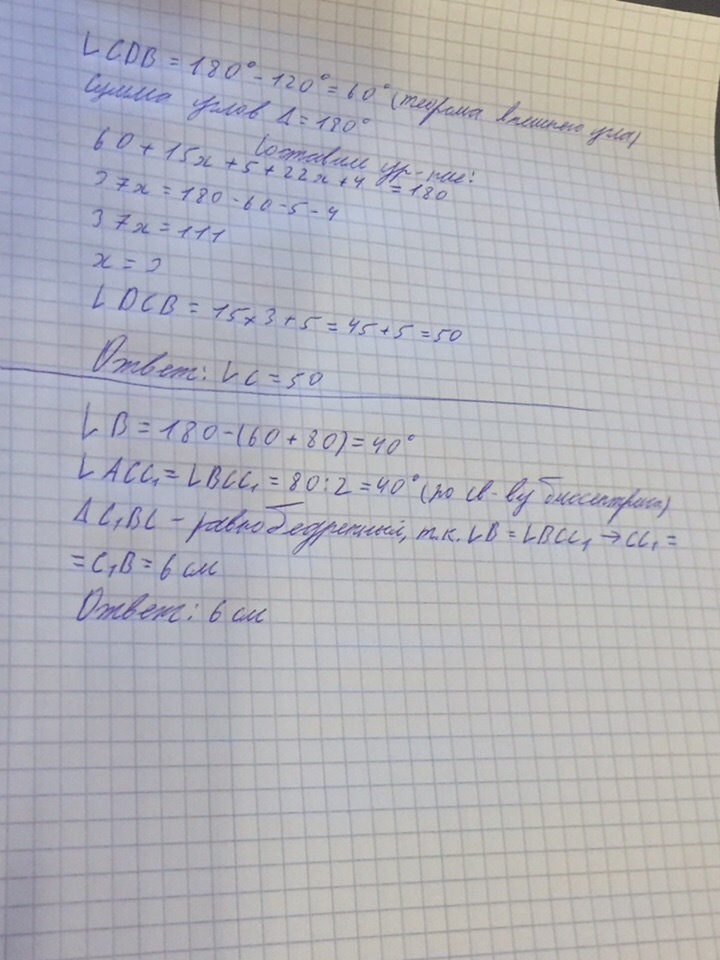 ∠CDB = 180° - 120° = 60° (теорема внешнего угла)
Сумма углов Δ = 180°
Составим ур-ние:
60 + 15x + 5 + 22x + 4 = 180
37x = 180 - 60 - 5 - 4
37x = 111
x = 3
∠DCB = 15×3 + 5 = 45 + 5 = 50
Ответ: ∠C = 50
∠B = 180 - (60 + 80) = 40°
∠ACC₁ = ∠BCC₁ = 80 : 2 = 40° (по св-ву биссектрисы)
ΔC₁BC - равнобедренный, т.к. ∠B = ∠BCC₁ → CC₁ =
= C₁B = 6 см
Ответ: 6 см